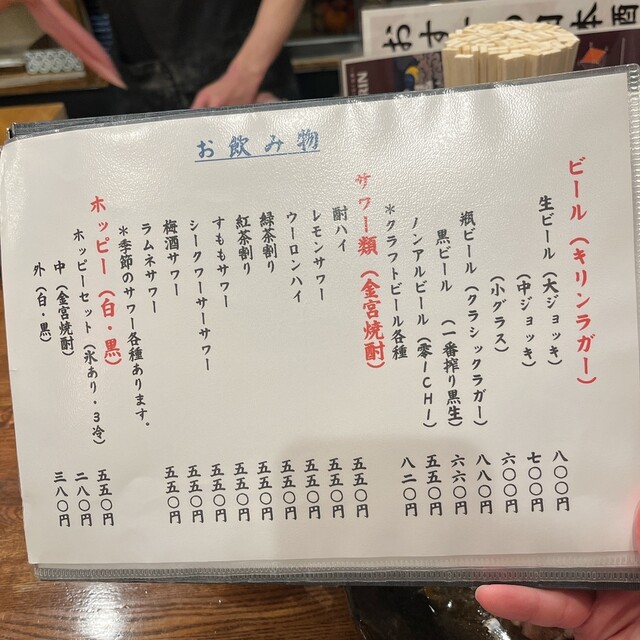 お飲み物
ビール（キリンラガー）
生ビール（大ジョッキ） 八〇〇円
（中ジョッキ） 七〇〇円
（小グラス） 六〇〇円
瓶ビール（クラシックラガー） 八八〇円
黒ビール（一番搾り黒生） 六六〇円
ノンアルビール（零ICHI） 五五〇円
＊クラフトビール各種 八二〇円
サワー類（金宮焼酎）
酎ハイ 五五〇円
レモンサワー 五五〇円
ウーロンハイ 五五〇円
緑茶割り 五五〇円
紅茶割り 五五〇円
すももサワー 五五〇円
シークワーサーサワー 五五〇円
梅酒サワー 五五〇円
ラムネサワー 五五〇円
＊季節のサワー各種あります。
ホッピー（白・黒）
ホッピーセット（氷あり・3冷） 五五〇円
中（金宮焼酎） 二八〇円
外（白・黒） 三八〇円